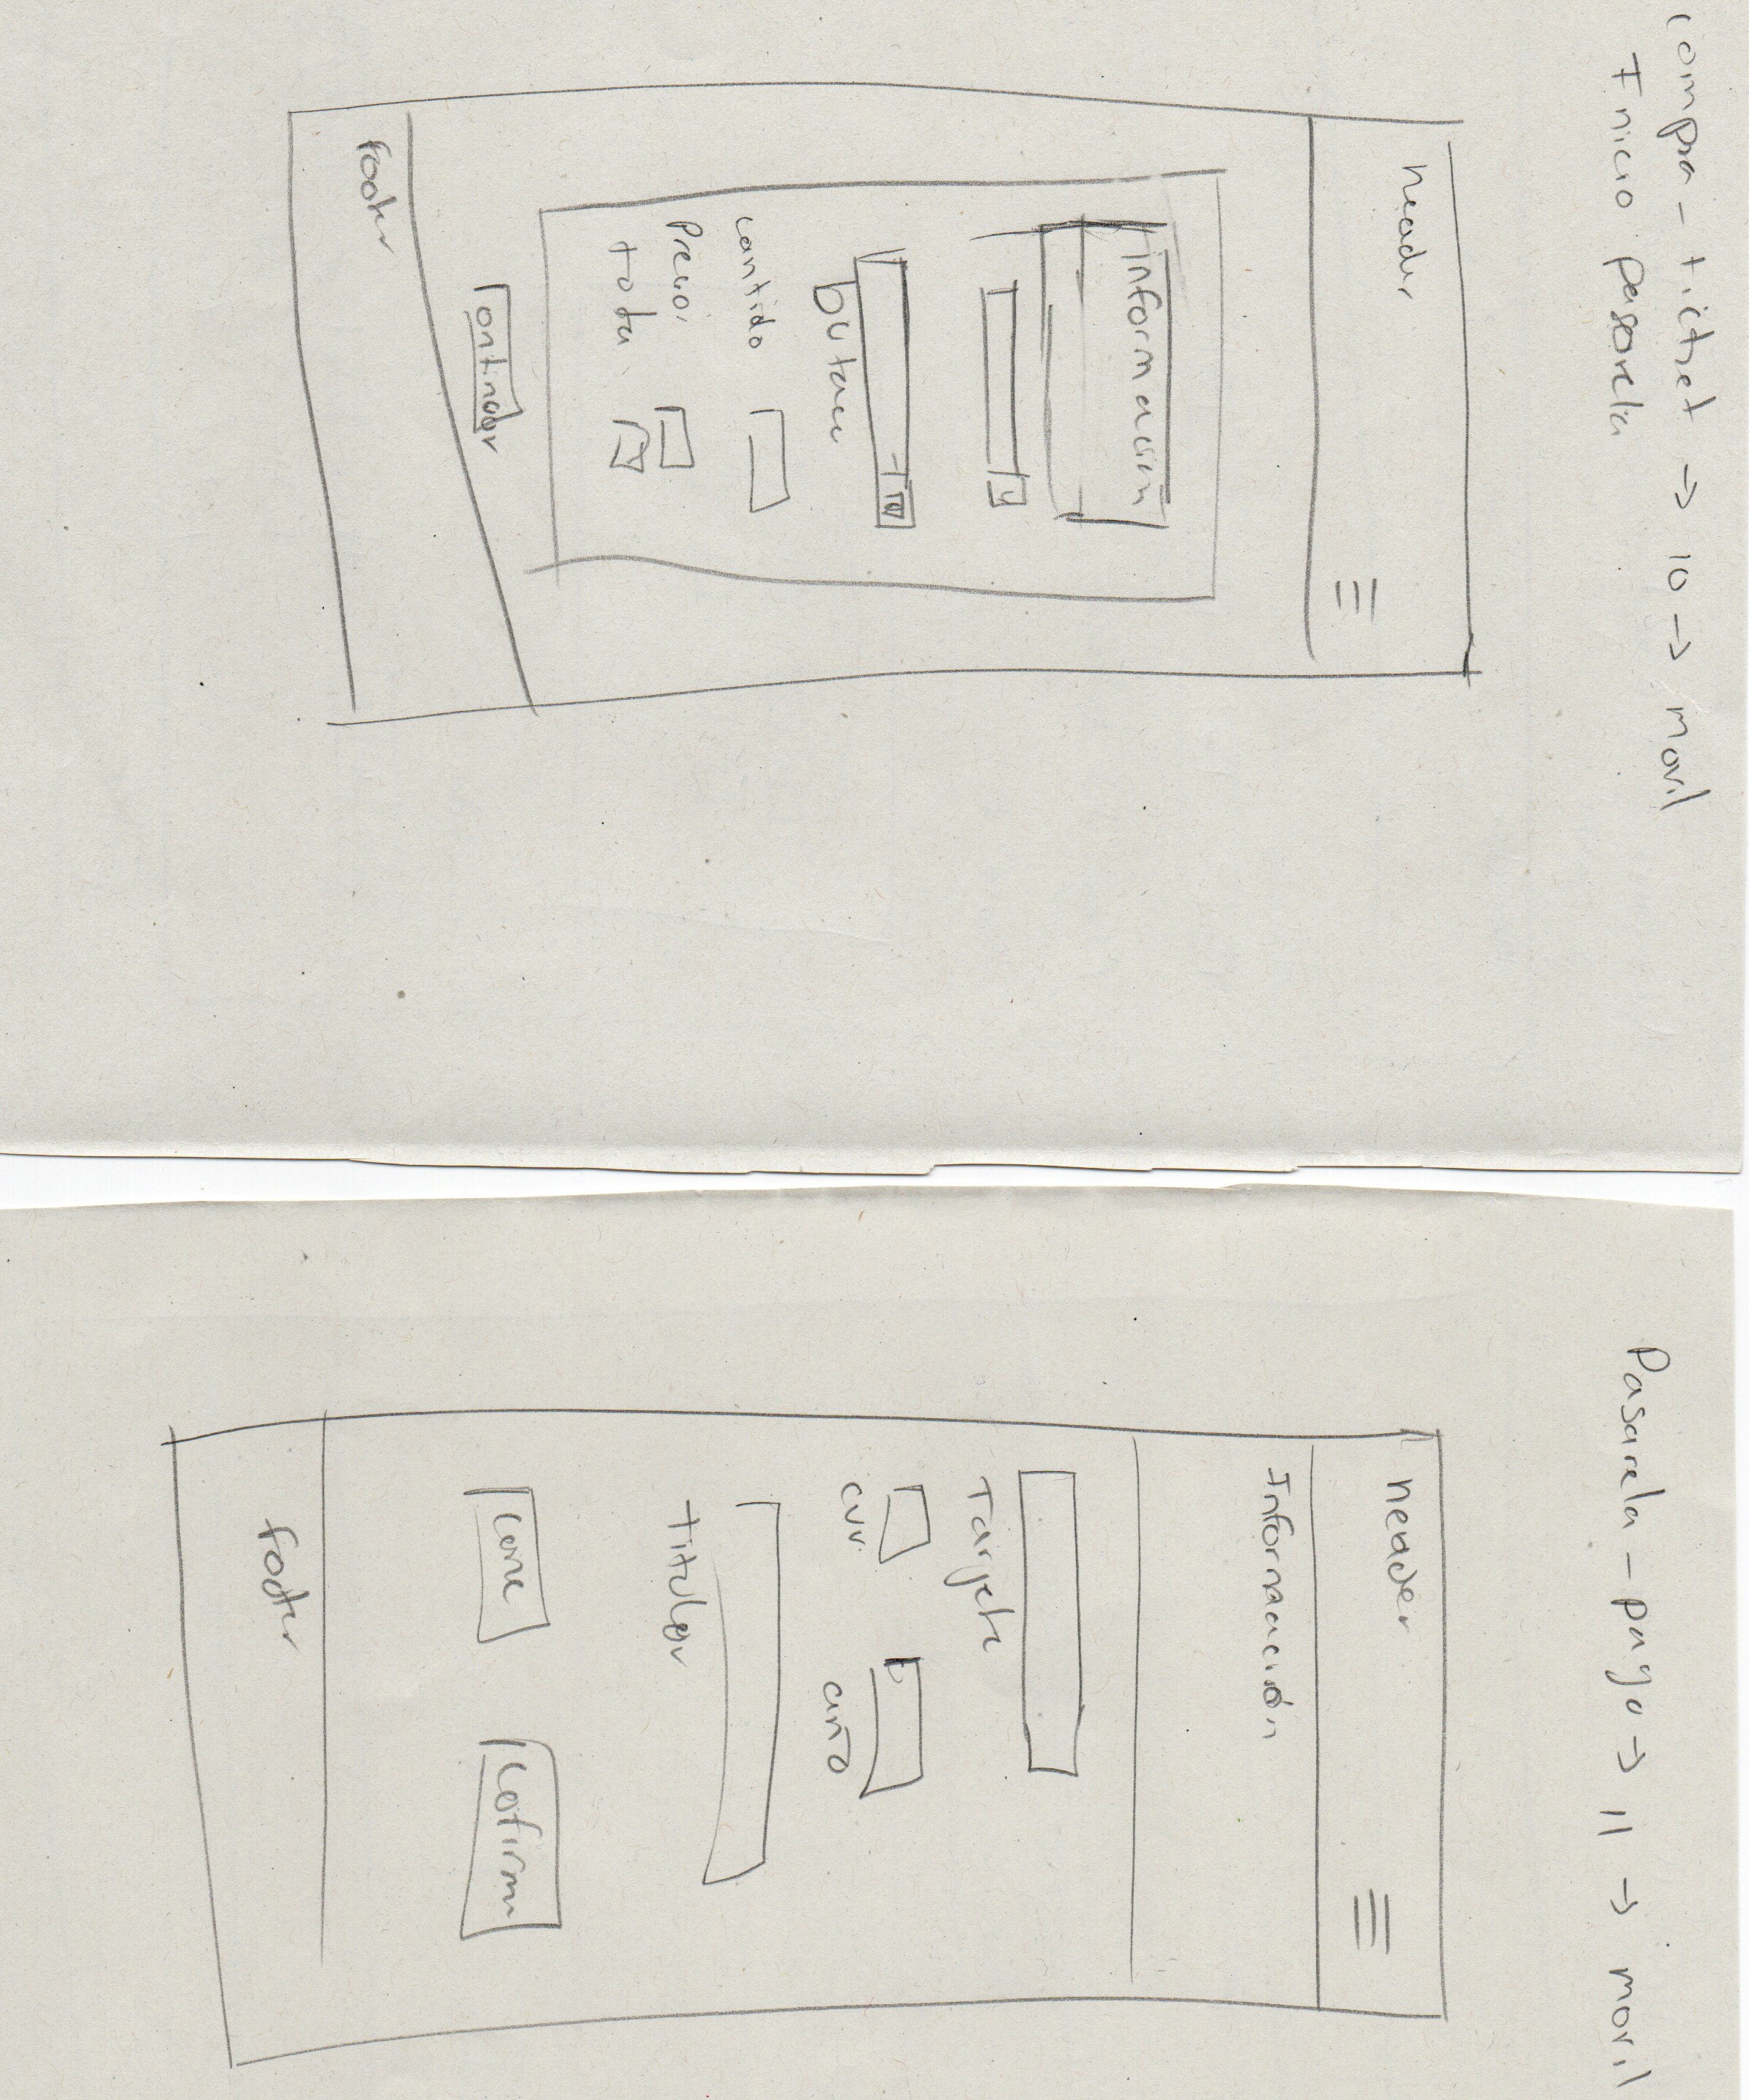 compra - ticket -> 10 -> movil
Inicio pasarela
header
información
butaca
cantida
Precio:
tota
Continuar
Footer
Pasarela - pago -> 11 -> movil
header
Información
Tarjeta
cvv
año
titular
canc
Cofirm
footer